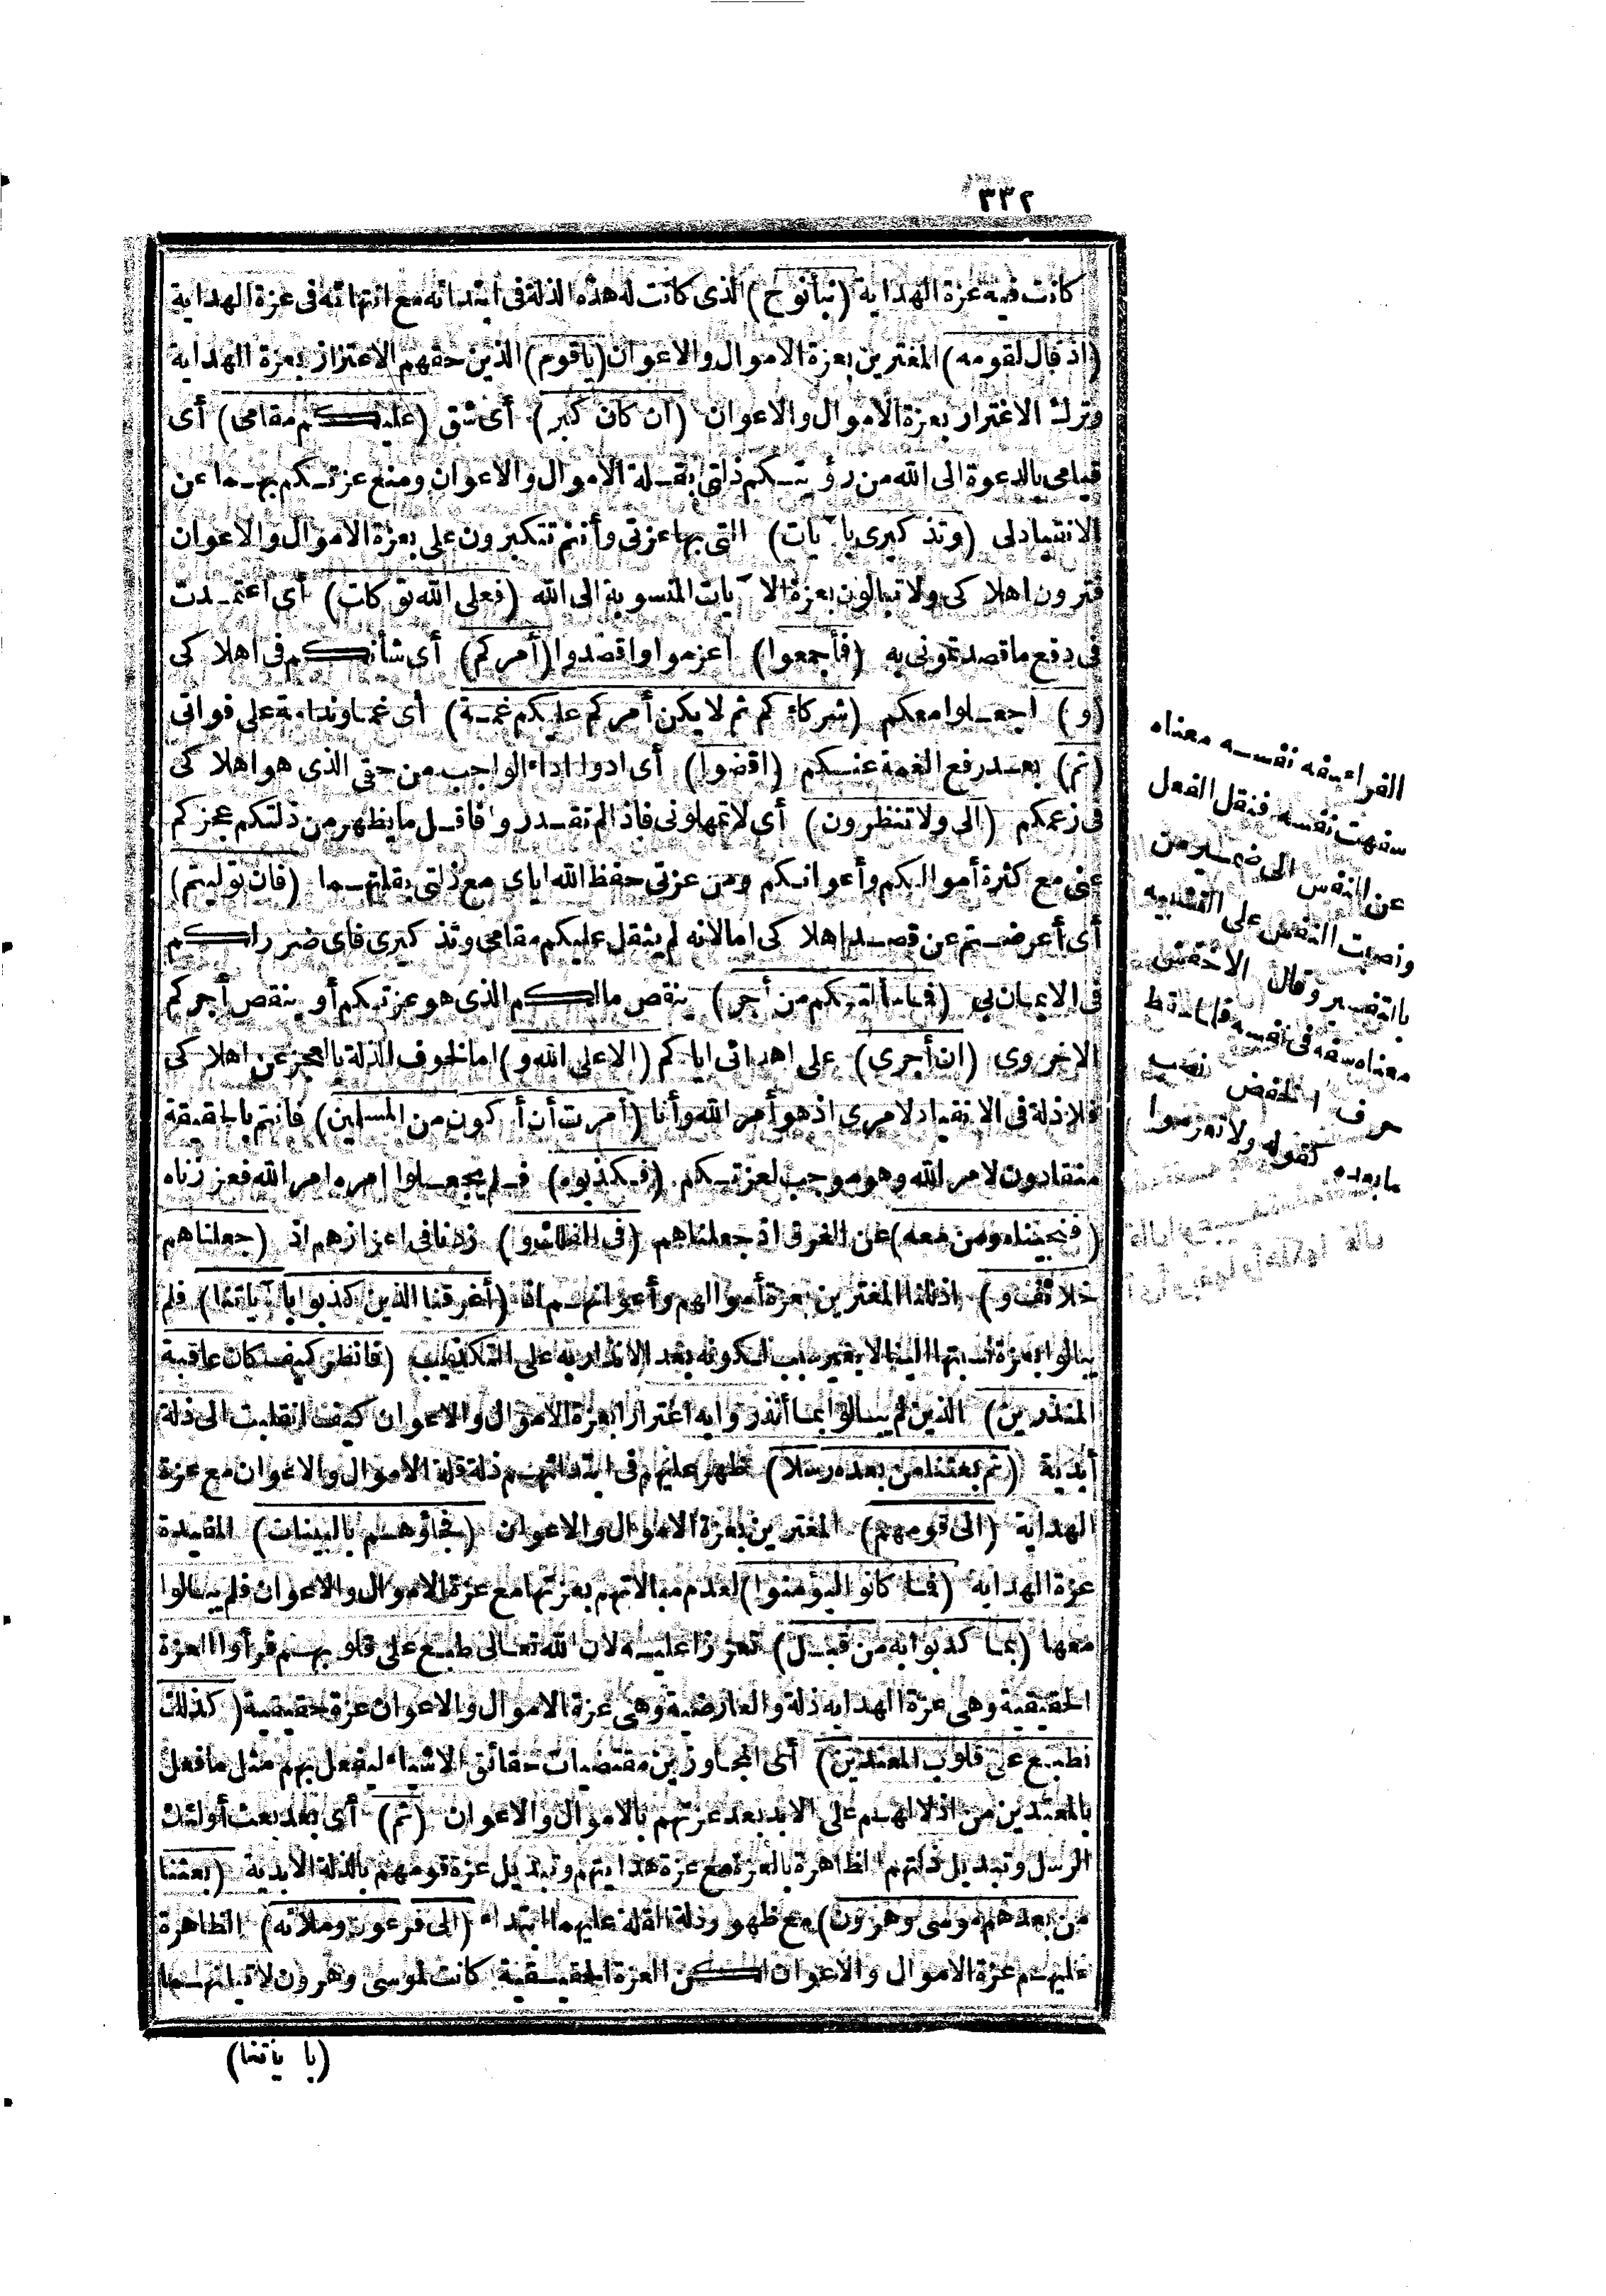 ٣٣٢
كانت فيه عزة الهداية (نبأ نوح) الذى كانت له هذه الذلة فى ابتدائه مع انتهائه فى عزة الهداية
(اذ قال لقومه) المغترين بعزة الاموال والاعوان (ياقوم) الذين حقهم الاعتزاز بعزة الهداية
وترك الاغترار بعزة الاموال والاعوان (ان كان كبر) أى شق (عليكم مقامى) أى
قيامى بالدعوة الى الله من رؤيتكم ذلتى بقلة الاموال والاعوان ومنع عزتكم بهما عن
الانقيادلى (وتذكيرى بآيات) التى بها عزتى وأنتم تتكبرون على بعزة الاموال والاعوان
فترون اهلاكى ولا تبالون بعزة الآيات المنسوبة الى الله (فعلى الله توكلت) أى اعتمدت
فى دفع ما قصدتمونى به (فأجمعوا) اعزموا واقصدوا (أمركم) أى شأنكم فى اهلاكى
(و) اجعلوا معكم (شركاءكم ثم لا يكن أمركم عليكم غمة) أى غما وندامة على فواتى
(ثم) بعد رفع الغمة عنكم (اقضوا) أى ادوا اداء الواجب من حقى الذى هو اهلاكى
فى زعمكم (الى ولا تنظرون) أى لا تمهلونى فاذا لم تقدروا فاقل ما يظهر من ذلتكم عجزكم
عنى مع كثرة أموالكم وأعوانكم ومن عزتى حفظ الله اياى مع ذلتى بقلتهما (فان توليتم)
أى أعرضتم عن قصد اهلاكى اما لانه لم يثقل عليكم مقامى وتذكيرى فاى ضرر لكم
فى الايمان بى (فما سألتكم من أجر) ينقص مالكم الذى هو عزتكم أو ينقص أجركم
الاخروى (ان أجرى) على اهدائى اياكم (الا على الله و) اما لخوف الذلة بالعجز عن اهلاكى
فلا ذلة فى الانقياد لامرى اذ هو أمر الله وأنا (أمرت أن أكون من المسلمين) فأنتم بالحقيقة
منقادون لامر الله وهو موجب لعزتكم (فكذبوه) فلم يجعلوا امره امر الله فعززناه
(فنجيناه ومن معه) عن الغرق اذ جعلناهم (فى الفلك و) زدنا فى اعزازهم اذ (جعلناهم
خلائف و) اذللنا المغترين بعزة أموالهم وأعوانهم اذ (أغرقنا الذين كذبوا بآياتنا) فلم
يبالوا بعزة نسبتها الينا لا بغير سبب لكونه بعد الانذار به على التكذيب (فانظر كيف كان عاقبة
المنذرين) الذين لم يبالوا بما أنذروا به اغترارا بعزة الاموال والاعوان كيف انقلبت الى ذلة
أبدية (ثم بعثنا من بعده رسلا) ظهر عليهم فى ابتدائهم ذلة قلة الاموال والاعوان مع عزة
الهداية (الى قومهم) المغترين بعزة الاموال والاعوان (فجاؤهم بالبينات) المفيدة
عزة الهداية (فما كانوا ليؤمنوا) لعدم مبالاتهم بعزتها مع عزة الاموال والاعوان فلم يبالوا
معها (بما كذبوا به من قبل) تعززا عليه لان الله تعالى طبع على قلوبهم فرأوا العزة
الحقيقية وهى عزة الهداية ذلة والعارضية وهى عزة الاموال والاعوان عزة حقيقية (كذلك
نطبع على قلوب المعتدين) أى المجاوزين مقتضيات حقائق الاشياء ليفعل بهم مثل ما فعل
بالمعتدين من اذلالهم على الابد بعد عزتهم بالاموال والاعوان (ثم) أى بعد بعث أولئك
الرسل وتبديل ذلتهم الظاهرة بالعزة مع عزة هدايتهم وتبديل عزة قومهم بالذلة الابدية (بعثنا
من بعدهم موسى وهرون) مع ظهور ذلة القلة عليهما ابتداء (الى فرعون وملائه) الظاهرة
عليهم عزة الاموال والاعوان لكن العزة الحقيقية كانت لموسى وهرون لاتيانهما
(بآياتنا)
الفراء سفه نفسه معناه
سفهت نفسه فنقل الفعل
عن النفس الى ضمير من
ونصبت النفس على التشبيه
بالتفسير وقال الاخفش
معناه سفه فى نفسه فلما سقط
حرف الخفض نصب
ما بعده كقوله ولا تعزموا